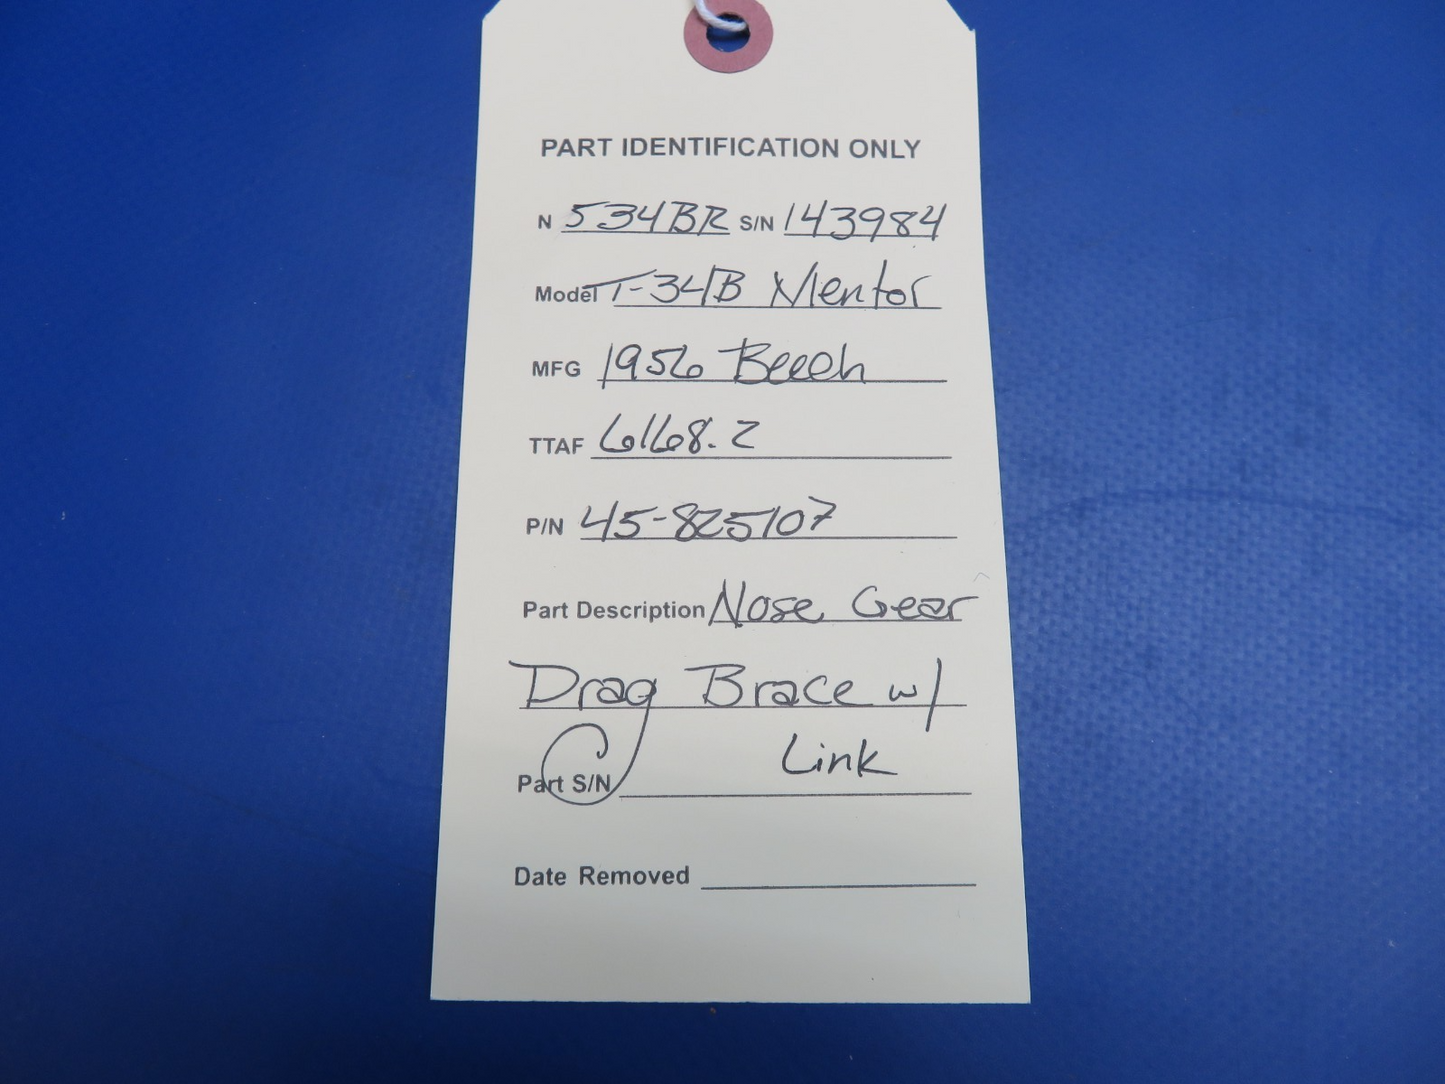 PART IDENTIFICATION ONLY
N 534BR S/N 143984
Model T-34B Mentor
MFG 1956 Beech
TTAF 6168.2
P/N 45-825107
Part Description Nose Gear
Drag Brace w/
Link
Part S/N
Date Removed